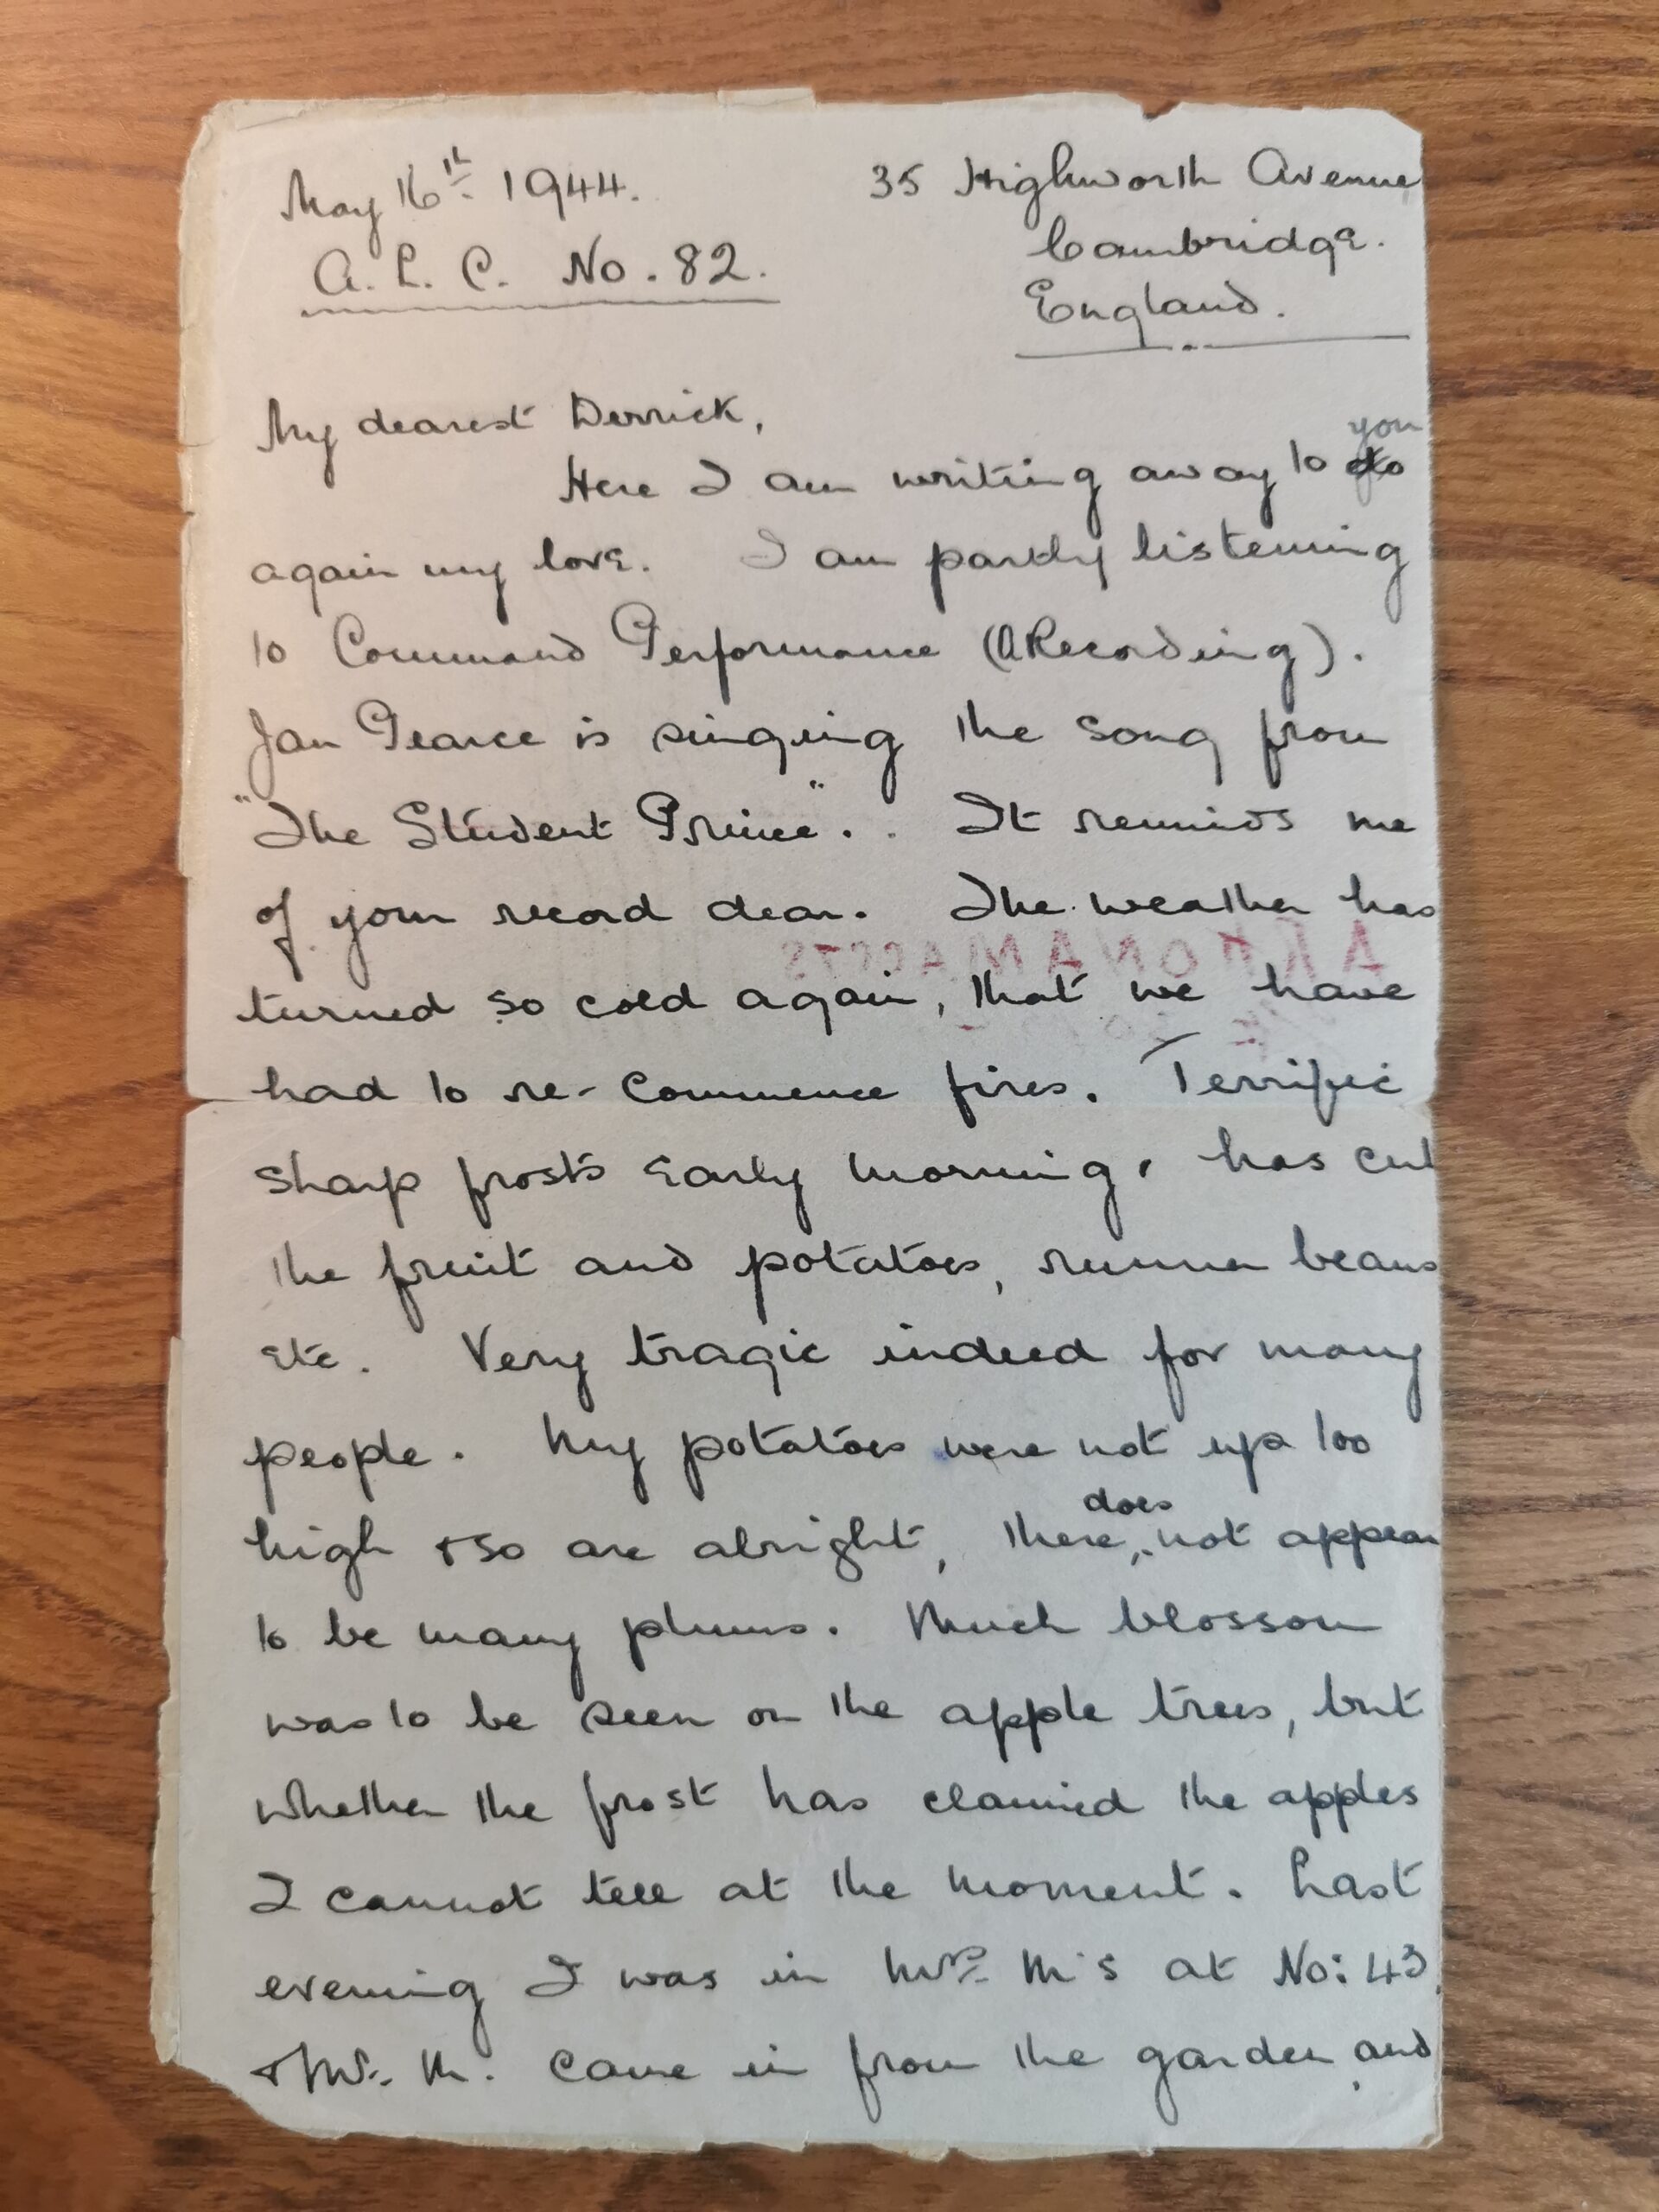 May 16th 1944.
35 Highworth Avenue
Cambridge.
A. L. C. No. 82.
England.
My dearest Derrick,
Here I am writing away to you
again my love. I am partly listening
to Command Performance (A Recording).
Jan Pearce is singing the song from
"The Student Prince". It reminds me
of your record dear. The weather has
turned so cold again, that we have
had to re-commence fires. Terrific
sharp frosts early morning, has cut
the fruit and potatoes, runner beans
etc. Very tragic indeed for many
people. My potatoes were not up too
high & so are alright, there does not appear
to be many plums. Much blossom
was to be seen on the apple trees, but
whether the frost has claimed the apples
I cannot tell at the moment. Last
evening I was in Mrs. M's at No: 43,
& Mr. M. came in from the garden, and